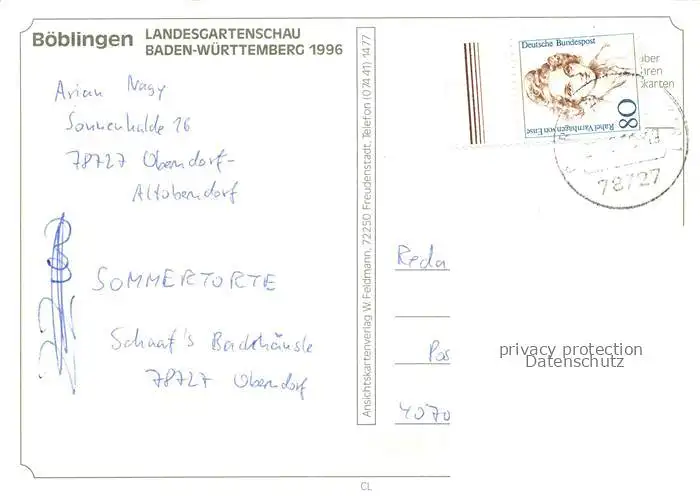 Böblingen
LANDESGARTENSCHAU
BADEN-WÜRTTEMBERG 1996
Arian Nagy
Sonnenhalde 16
78727 Oberndorf-
Altoberndorf
SOMMERTORTE
Schaaf's Backhäusle
78727 Oberndorf
Ansichtskartenverlag W. Feldmann, 72250 Freudenstadt, Telefon (07441) 1477
Deutsche Bundespost
80
Rahel Varnhagen von Ense
über
uren
okarten
78727
Reda
Pos
4070
privacy protection
Datenschutz
CL